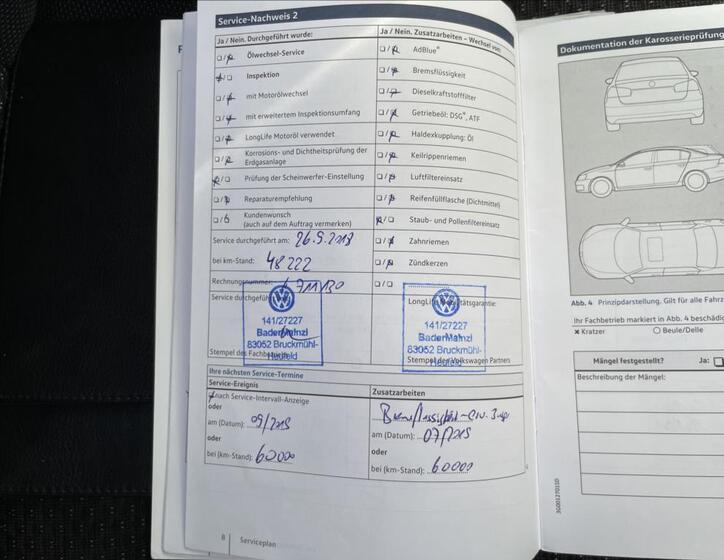 Service-Nachweis 2
Ja / Nein. Durchgeführt wurde:
Ölwechsel-Service
Inspektion
mit Motorölwechsel
mit erweitertem Inspektionsumfang
LongLife Motoröl verwendet
Korrosions- und Dichtheitsprüfung der
Erdgasanlage
Prüfung der Scheinwerfer-Einstellung
Reparaturempfehlung
Kundenwunsch
(auch auf dem Auftrag vermerken)
Service durchgeführt am: 26.9.2018
bei km-Stand: 48222
Rechnungsnummer:
Service durchgeführt
141/27227
BaderMainzl
83052 Bruckmühl-
Heufeld
Stempel des
Ja / Nein. Zusatzarbeiten – Wechsel von:
AdBlue®
Bremsflüssigkeit
Dieselkraftstofffilter
Getriebeöl: DSG®, ATF
Haldexkupplung: Öl
Keilrippenriemen
Luftfiltereinsatz
Reifenfüllflasche (Dichtmittel)
Staub- und Pollenfiltereinsatz
Zahnriemen
Zündkerzen
LongLife
141/27227
BaderMainzl
83052 Bruckmühl-
Heufeld
Stempel des Volkswagen Partners
Ihre nächsten Service-Termine
Service-Ereignis
nach Service-Intervall-Anzeige
oder
am (Datum):
oder
bei (km-Stand): 60000
Zusatzarbeiten
am (Datum):
oder
bei (km-Stand): 60000
8 Serviceplan
Dokumentation der Karosserieprüfung
Abb. 4 Prinzipdarstellung. Gilt für alle
Ihr Fachbetrieb markiert in Abb. 4
Kratzer Beule/Delle
Mängel festgestellt? Ja:
Beschreibung der Mängel: